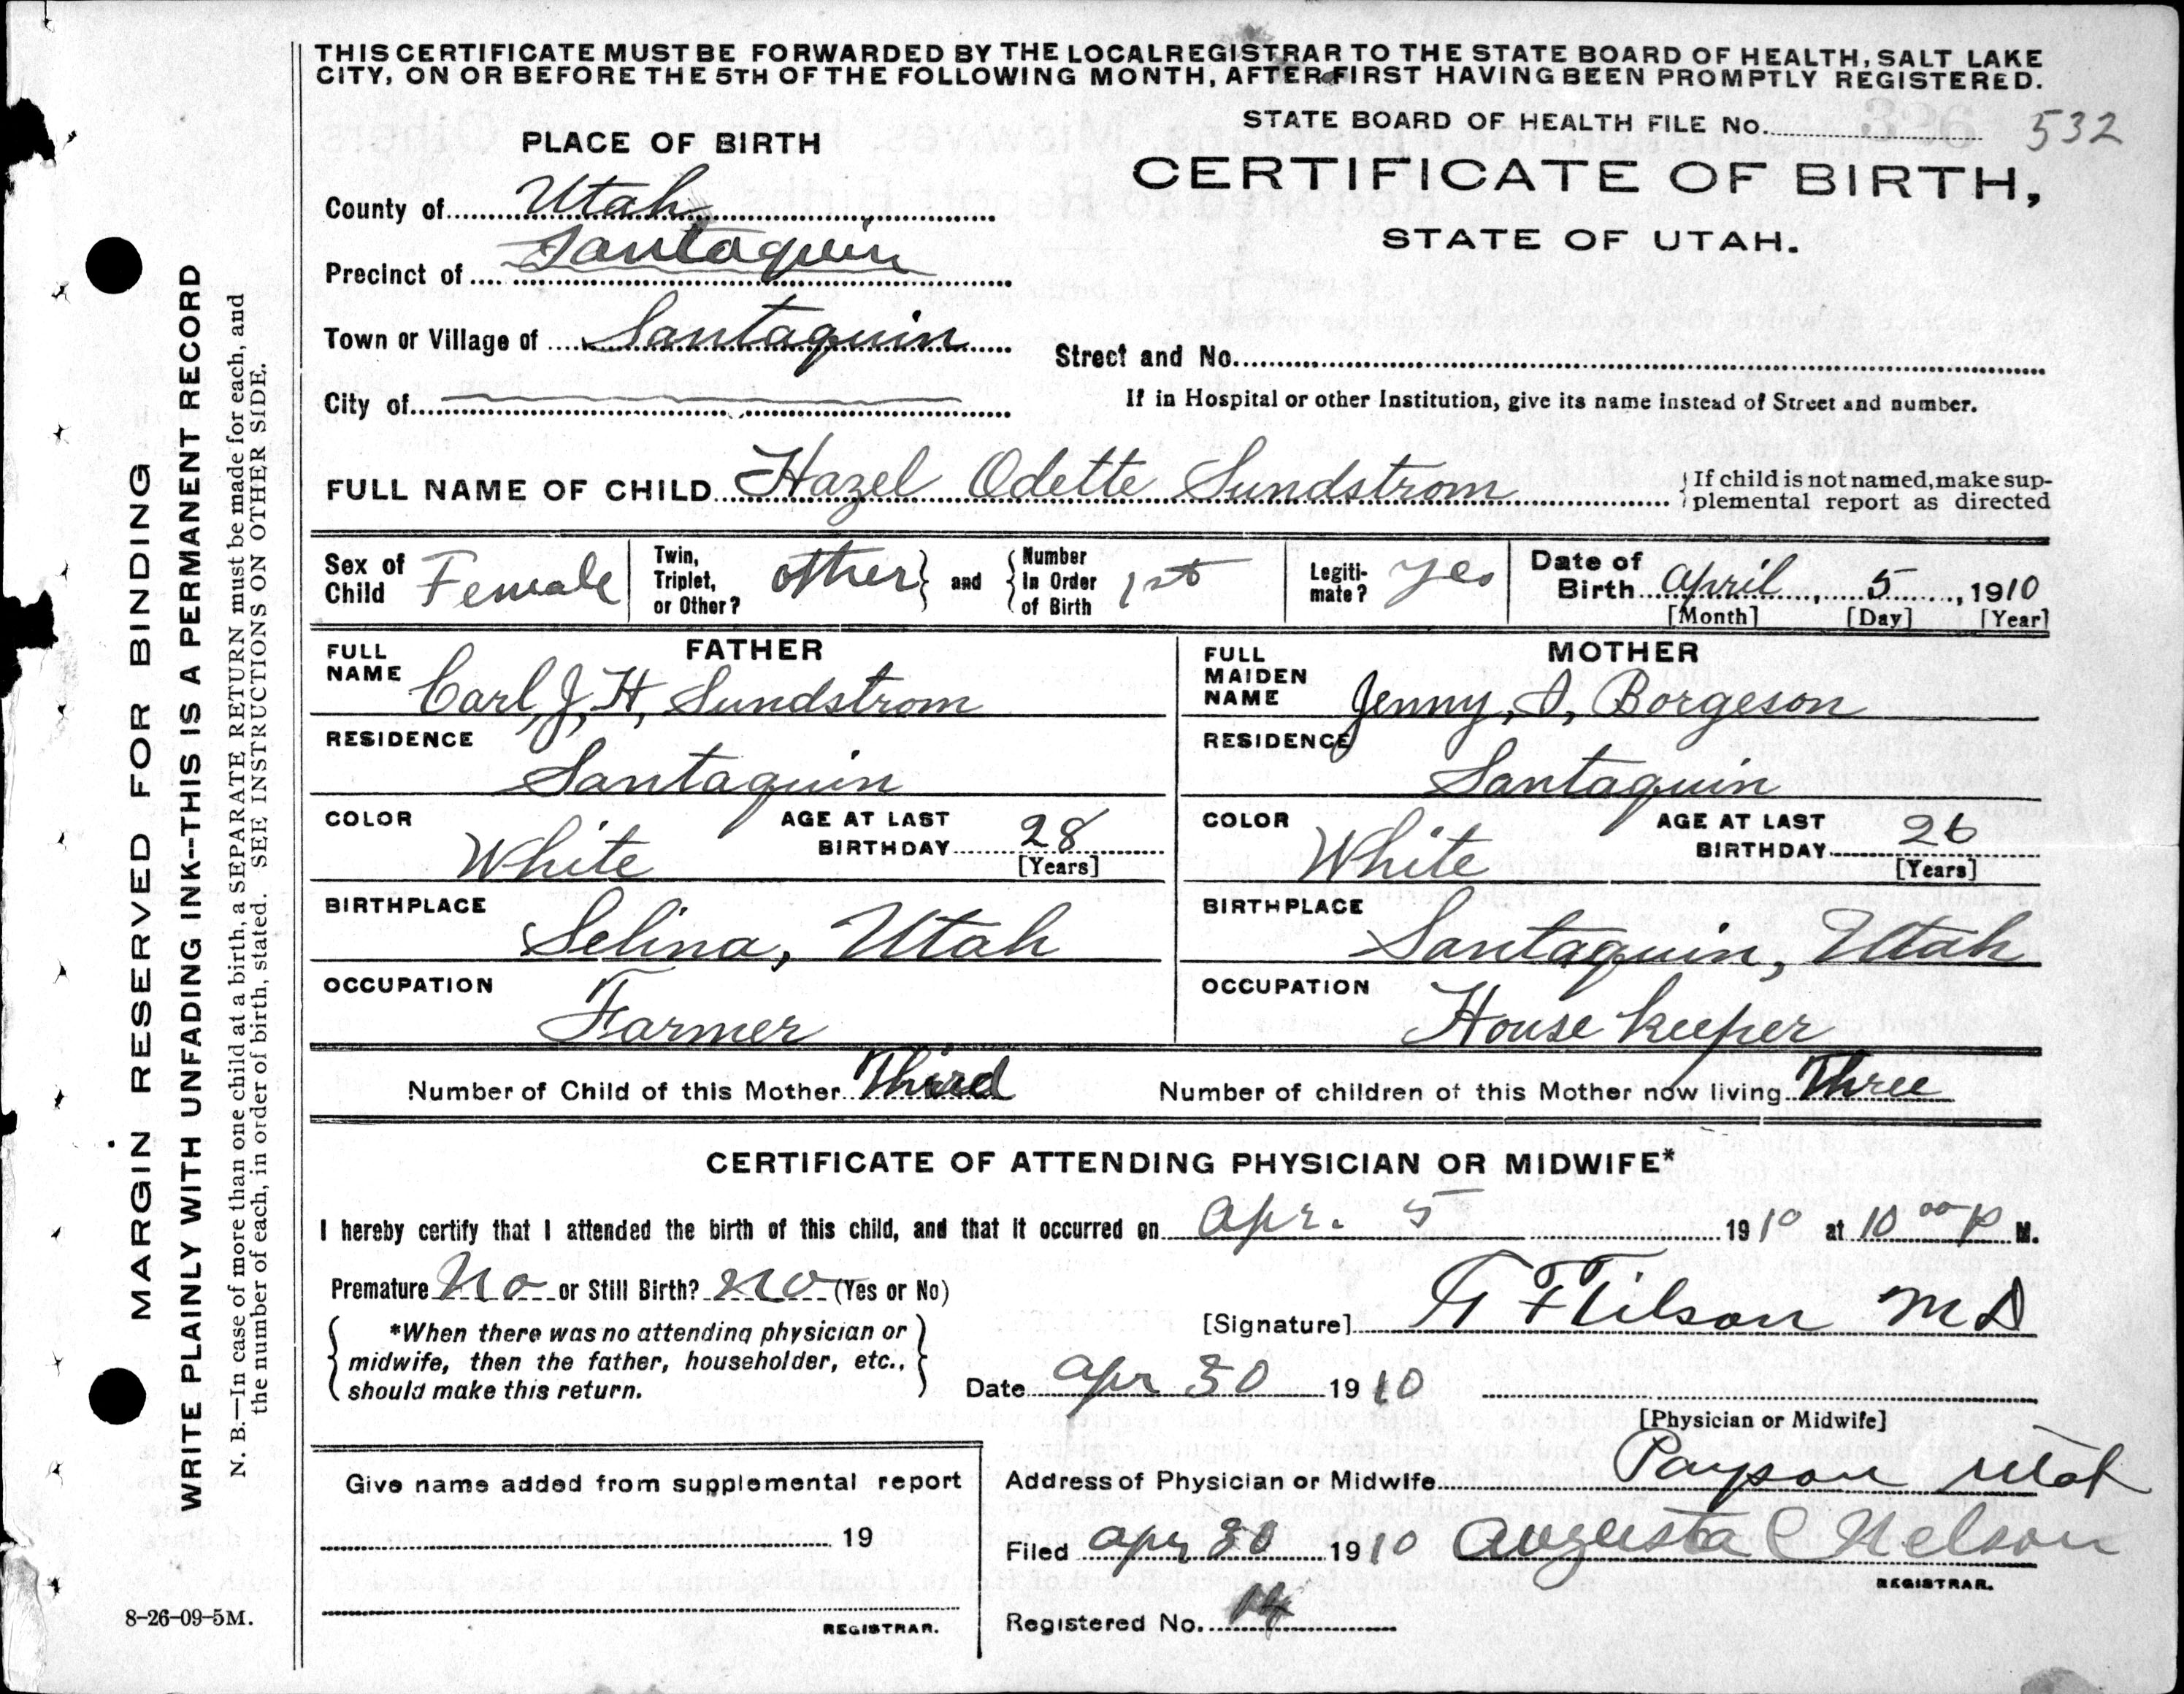 THIS CERTIFICATE MUST BE FORWARDED BY THE LOCAL REGISTRAR TO THE STATE BOARD OF HEALTH, SALT LAKE
CITY, ON OR BEFORE THE 5TH OF THE FOLLOWING MONTH, AFTER FIRST HAVING BEEN PROMPTLY REGISTERED.
STATE BOARD OF HEALTH FILE No. 532
PLACE OF BIRTH
CERTIFICATE OF BIRTH,
STATE OF UTAH.
County of Utah
Precinct of Santaquin
Town or Village of Santaquin
Street and No.
City of
If in Hospital or other Institution, give its name instead of Street and number.
FULL NAME OF CHILD Hazel Odette Sundstrom
If child is not named, make sup-
plemental report as directed
Sex of Child Female
Twin, Triplet, or Other? other
and Number In Order of Birth 1st
Legiti-mate? Yes
Date of Birth April 5, 1910
[Month] [Day] [Year]
FATHER
FULL NAME Carl, J, H, Sundstrom
RESIDENCE
Santaquin
COLOR White
AGE AT LAST BIRTHDAY 28
[Years]
BIRTHPLACE
Selina, Utah
OCCUPATION
Farmer
MOTHER
FULL MAIDEN NAME Jenny, S, Borgeson
RESIDENCE
Santaquin
COLOR White
AGE AT LAST BIRTHDAY 26
[Years]
BIRTHPLACE
Santaquin, Utah
OCCUPATION
House keeper
Number of Child of this Mother Third
Number of children of this Mother now living Three
CERTIFICATE OF ATTENDING PHYSICIAN OR MIDWIFE*
I hereby certify that I attended the birth of this child, and that it occurred on Apr. 5 1910 at 10 00 P M.
Premature No or Still Birth? No (Yes or No)
*When there was no attending physician or
midwife, then the father, householder, etc.,
should make this return.
[Signature] M D
Date Apr 30 1910
[Physician or Midwife]
Address of Physician or Midwife Payson Utah
Give name added from supplemental report
19
REGISTRAR.
Filed Apr 30 1910 Augusta C Nelson
REGISTRAR.
Registered No. 14
MARGIN RESERVED FOR BINDING
WRITE PLAINLY WITH UNFADING INK--THIS IS A PERMANENT RECORD
N. B.—In case of more than one child at a birth, a SEPARATE RETURN must be made for each, and
the number of each, in order of birth, stated. SEE INSTRUCTIONS ON OTHER SIDE.
8-26-09-5M.